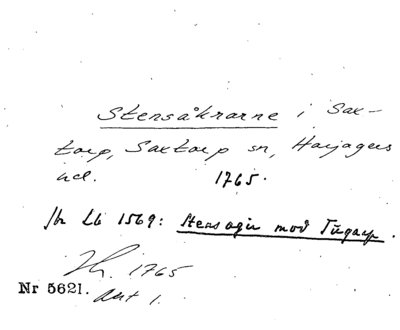 Stensåkrarne i Sax-
torp, Saxtorp sn, Harjagers
hd. 1765.
Jfr Lb 1569: Stens agir mod Tugarp.
1765
Nr 5621. Akt 1.